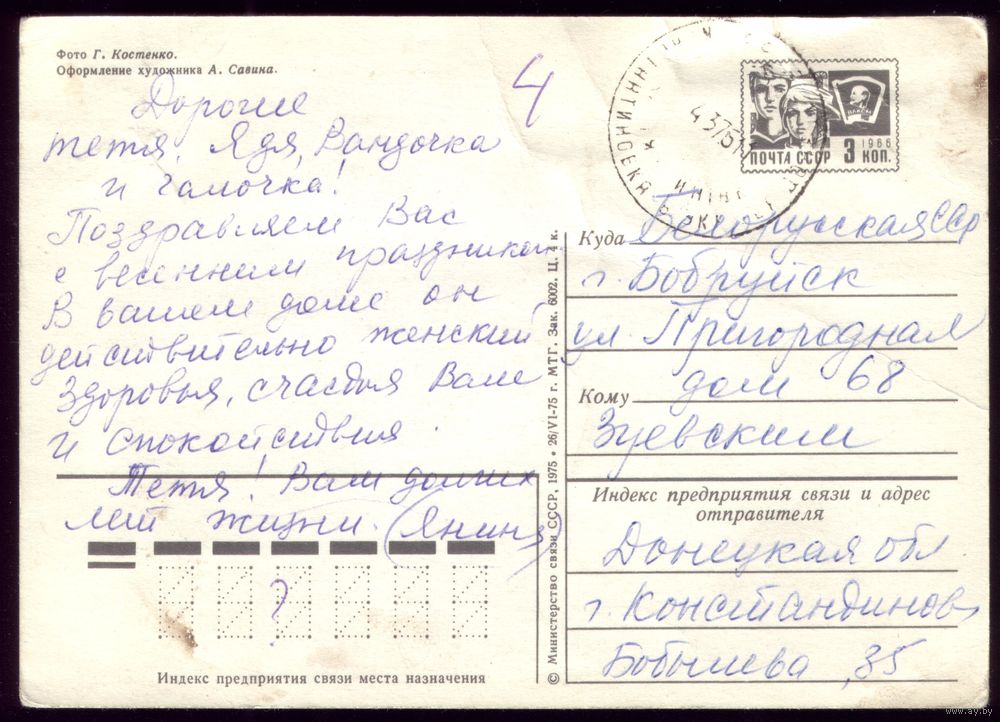 Фото Г. Костенко.
Оформление художника А. Савина.
4
Дорогие
тетя, Ядя, Вандочка
и Галочка!
Поздравляем Вас
с весенним праздником
В вашем доме он
действительно женский
Здоровья, счастья Вам
и спокойствия.
Тетя! Вам долгих
лет жизни. (Янина)
?
Индекс предприятия связи места назначения
© Министерство связи СССР, 1975 • 26/VI-75 г. МТГ. Зак. 6002. Ц. 4 к.
ВЛКСМ
1966
ПОЧТА СССР 3 КОП.
4375
Куда Белорусская ССР
г. Бобруйск
ул. Пригородная
дом 68
Кому
Зуевским
Индекс предприятия связи и адрес
отправителя
Донецкая обл
г. Константинов
Бобылева, 35
www.ay.by